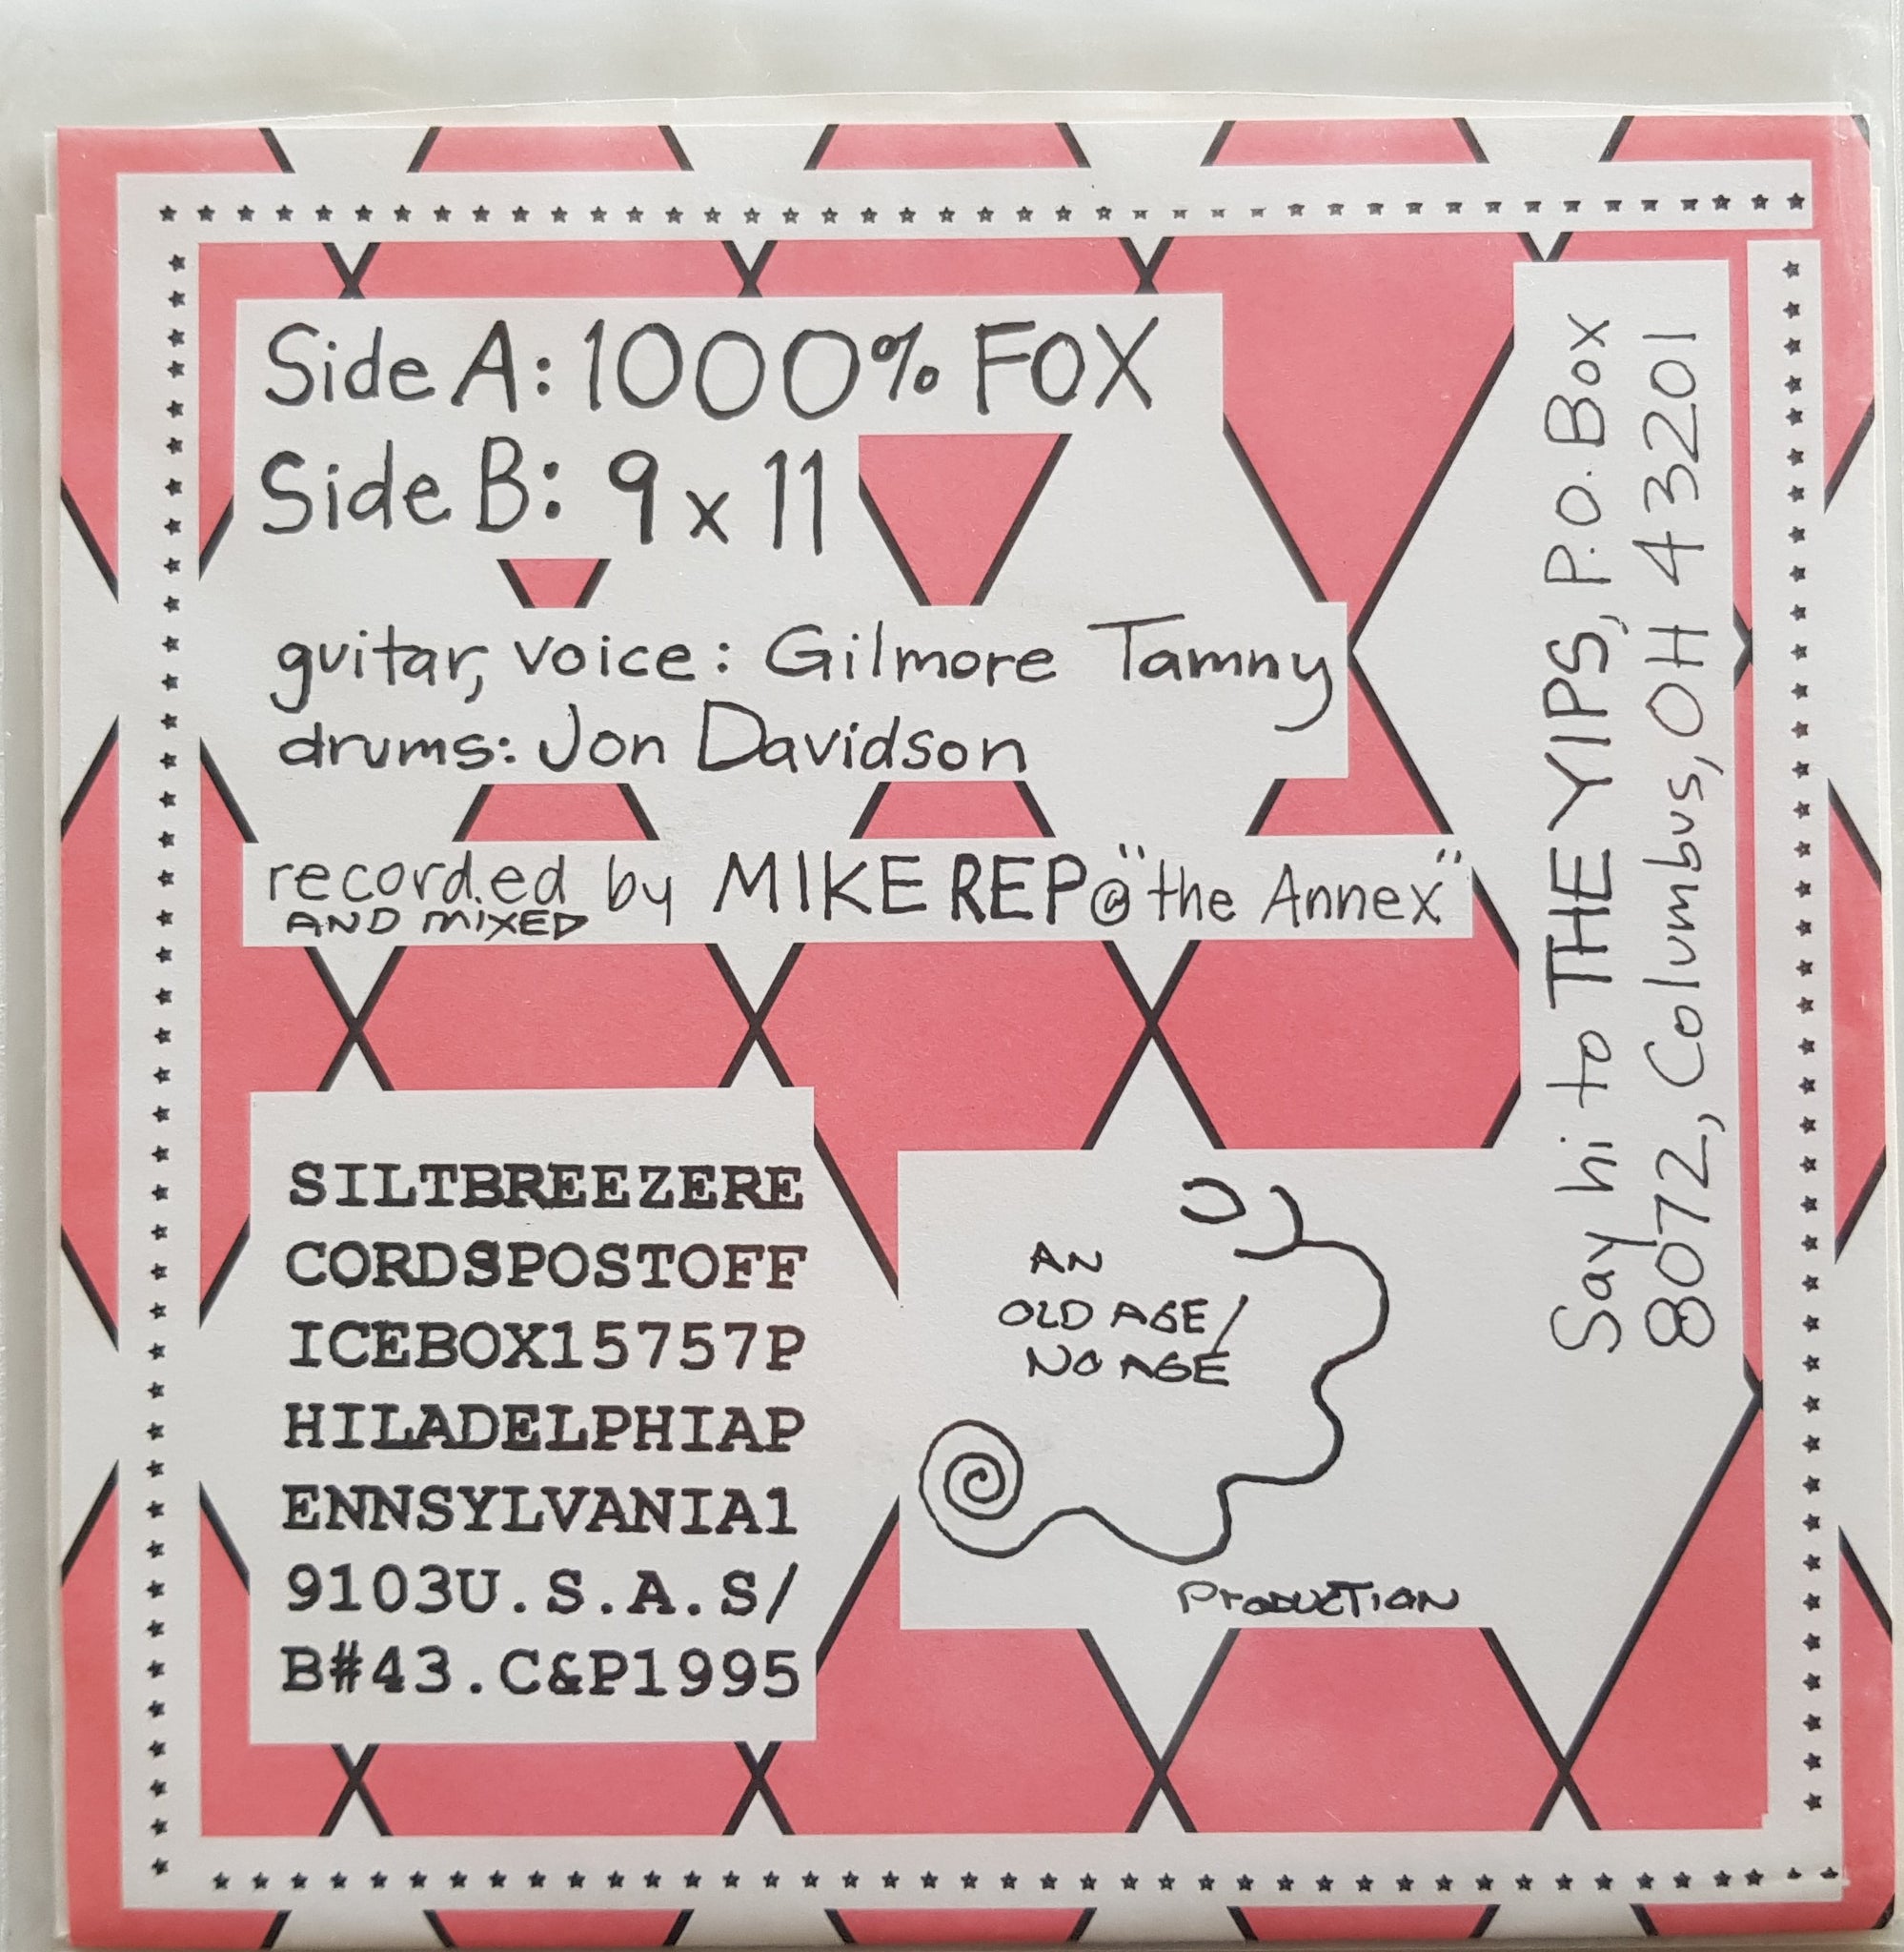 Side A: 1000% FOX
Side B: 9 x 11
guitar, voice: Gilmore Tamny
drums: Jon Davidson
recorded by MIKE REP @ "the Annex"
AND MIXED
Say hi to THE YIPS, P.O. Box
8072, Columbus, OH 43201
SILTBREEZERE
CORDSPOSTOFF
ICEBOX15757P
HILADELPHIAP
ENNSYLVANIA1
9103U.S.A.S/
B#43.C&P1995
AN
OLD AGE/
NO AGE
PRODUCTION